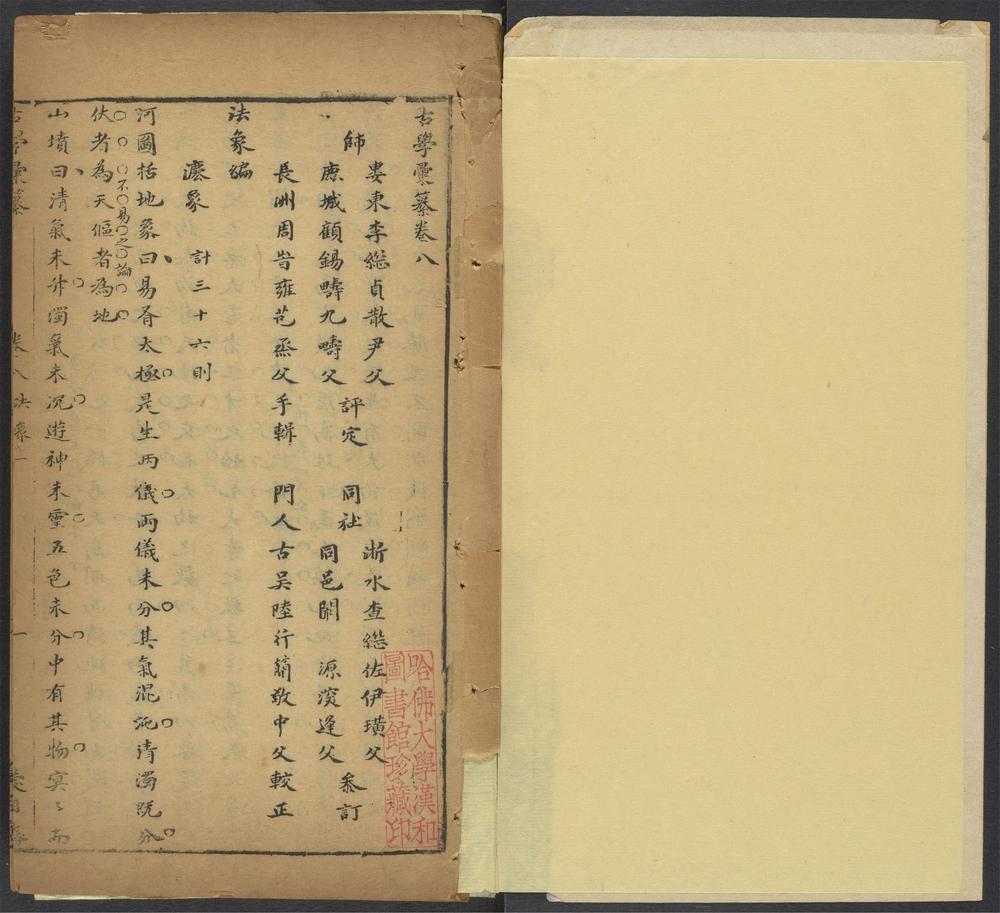 古學彙纂卷八
婁東李繼貞散尹父　浙水查繼佐伊璜父
師　評定　同社　叅訂
鹿城顧錫疇九疇父　同邑關　源淡逢父
長洲周時雍芑烝父手輯　門人古吳陸行簡敬中父較正
法象編
瀍象　計三十六則
河圖括地象曰易有太極是生兩儀兩儀未分其氣混沌清濁既分
不易之論
伏者為天傴者為地
山墳曰清氣未升濁氣未沉遊神未靈五色未分中有其物冥〻而
古學彙纂　卷八法象　一
哈佛大學漢和
圖書館珍藏印